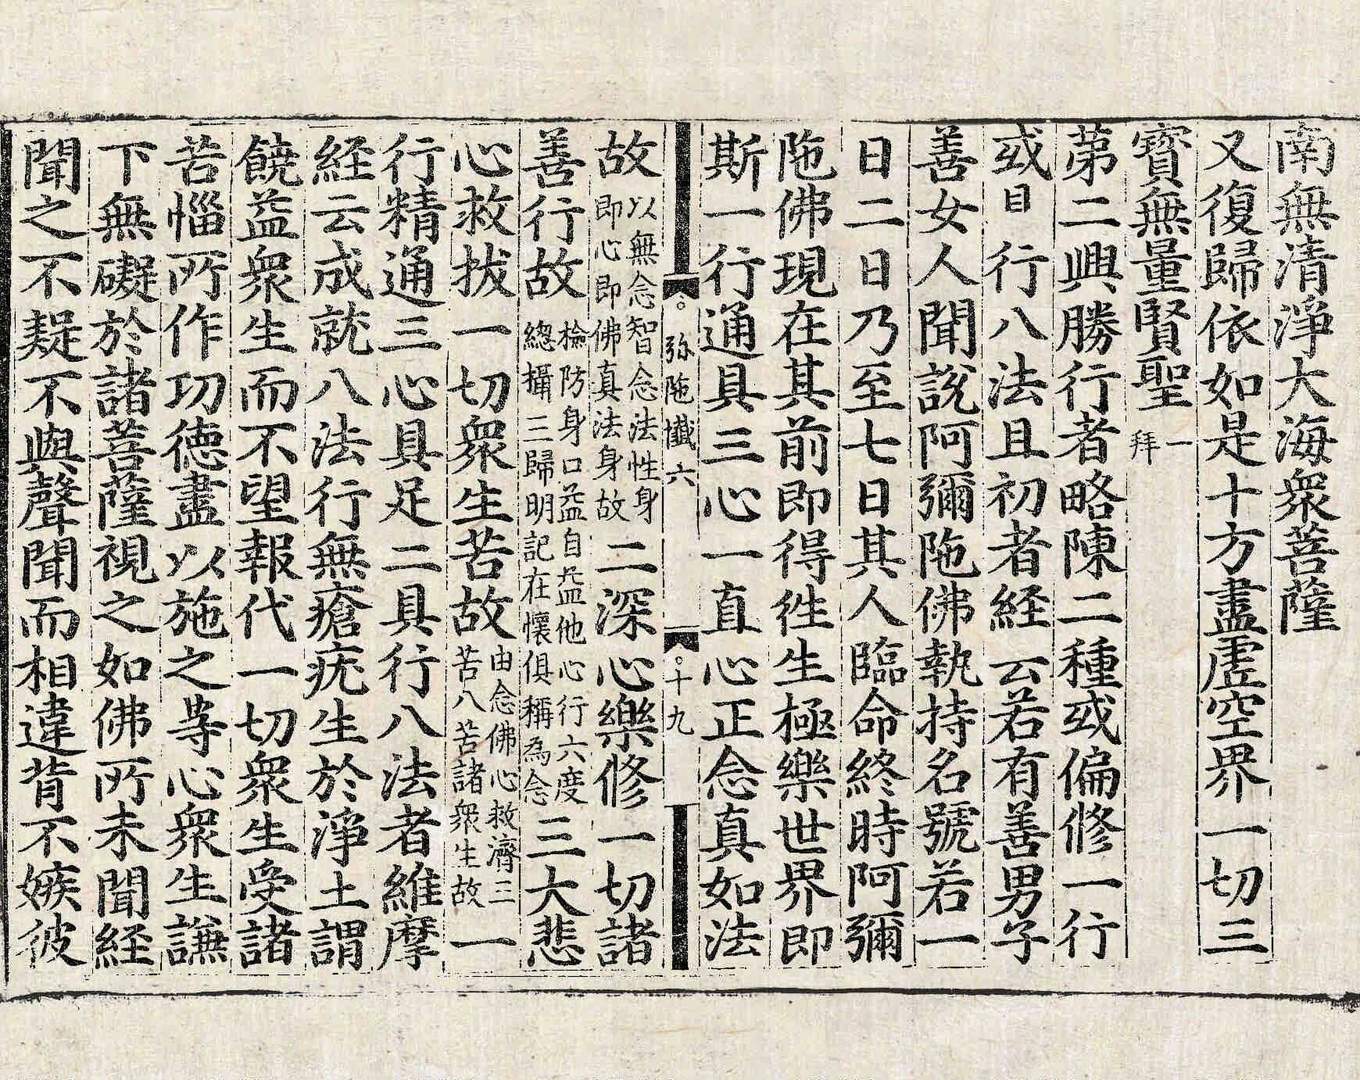 南無清淨大海衆菩薩
又復歸依如是十方盡虛空界一切三
寳無量賢聖一拜
第二興勝行者略陳二種或偏修一行
或目行八法且初者経云若有善男子
善女人聞說阿彌陁佛執持名號若一
日二日乃至七日其人臨命終時阿彌
陁佛現在其前即得徃生極樂世界即
斯一行通具三心一直心正念真如法
弥陁懺六
十九
故以無念智念法性身
即心即佛真法身故二深心樂修一切諸
善行故檢防身口益自益他心行六度
總攝三歸明記在懷俱稱為念三大悲
心救拔一切衆生苦故由念佛心救濟三
苦八苦諸衆生故一
行精通三心具足二具行八法者維摩
経云成就八法行無瘡疣生於淨土謂
饒益衆生而不望報代一切衆生受諸
苦惱所作功徳盡以施之等心衆生謙
下無礙於諸菩薩視之如佛所未聞経
聞之不疑不與聲聞而相違背不嫉彼